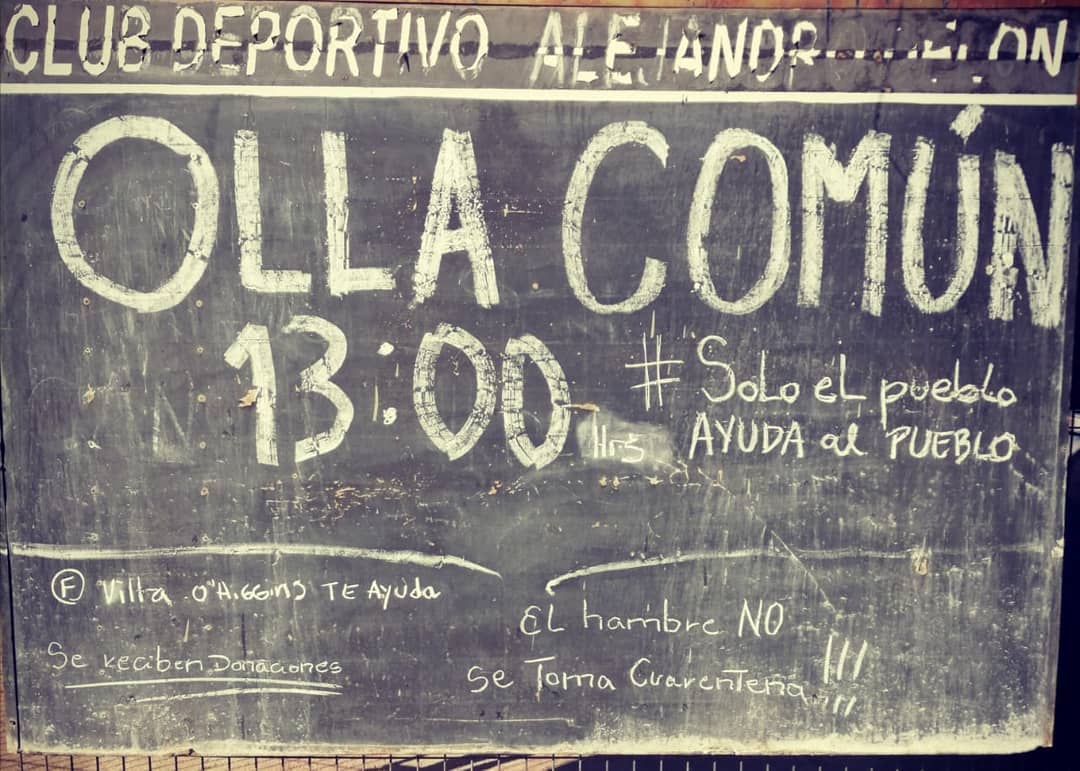 CLUB DEPORTIVO
OLLA COMÚN
13:00 Hrs
#Solo el pueblo
AYUDA al PUEBLO
Ⓕ Villa O'Higgins TE AyUda
Se reciben Donaciones
EL hambre NO
se Toma Cuarentena !!!